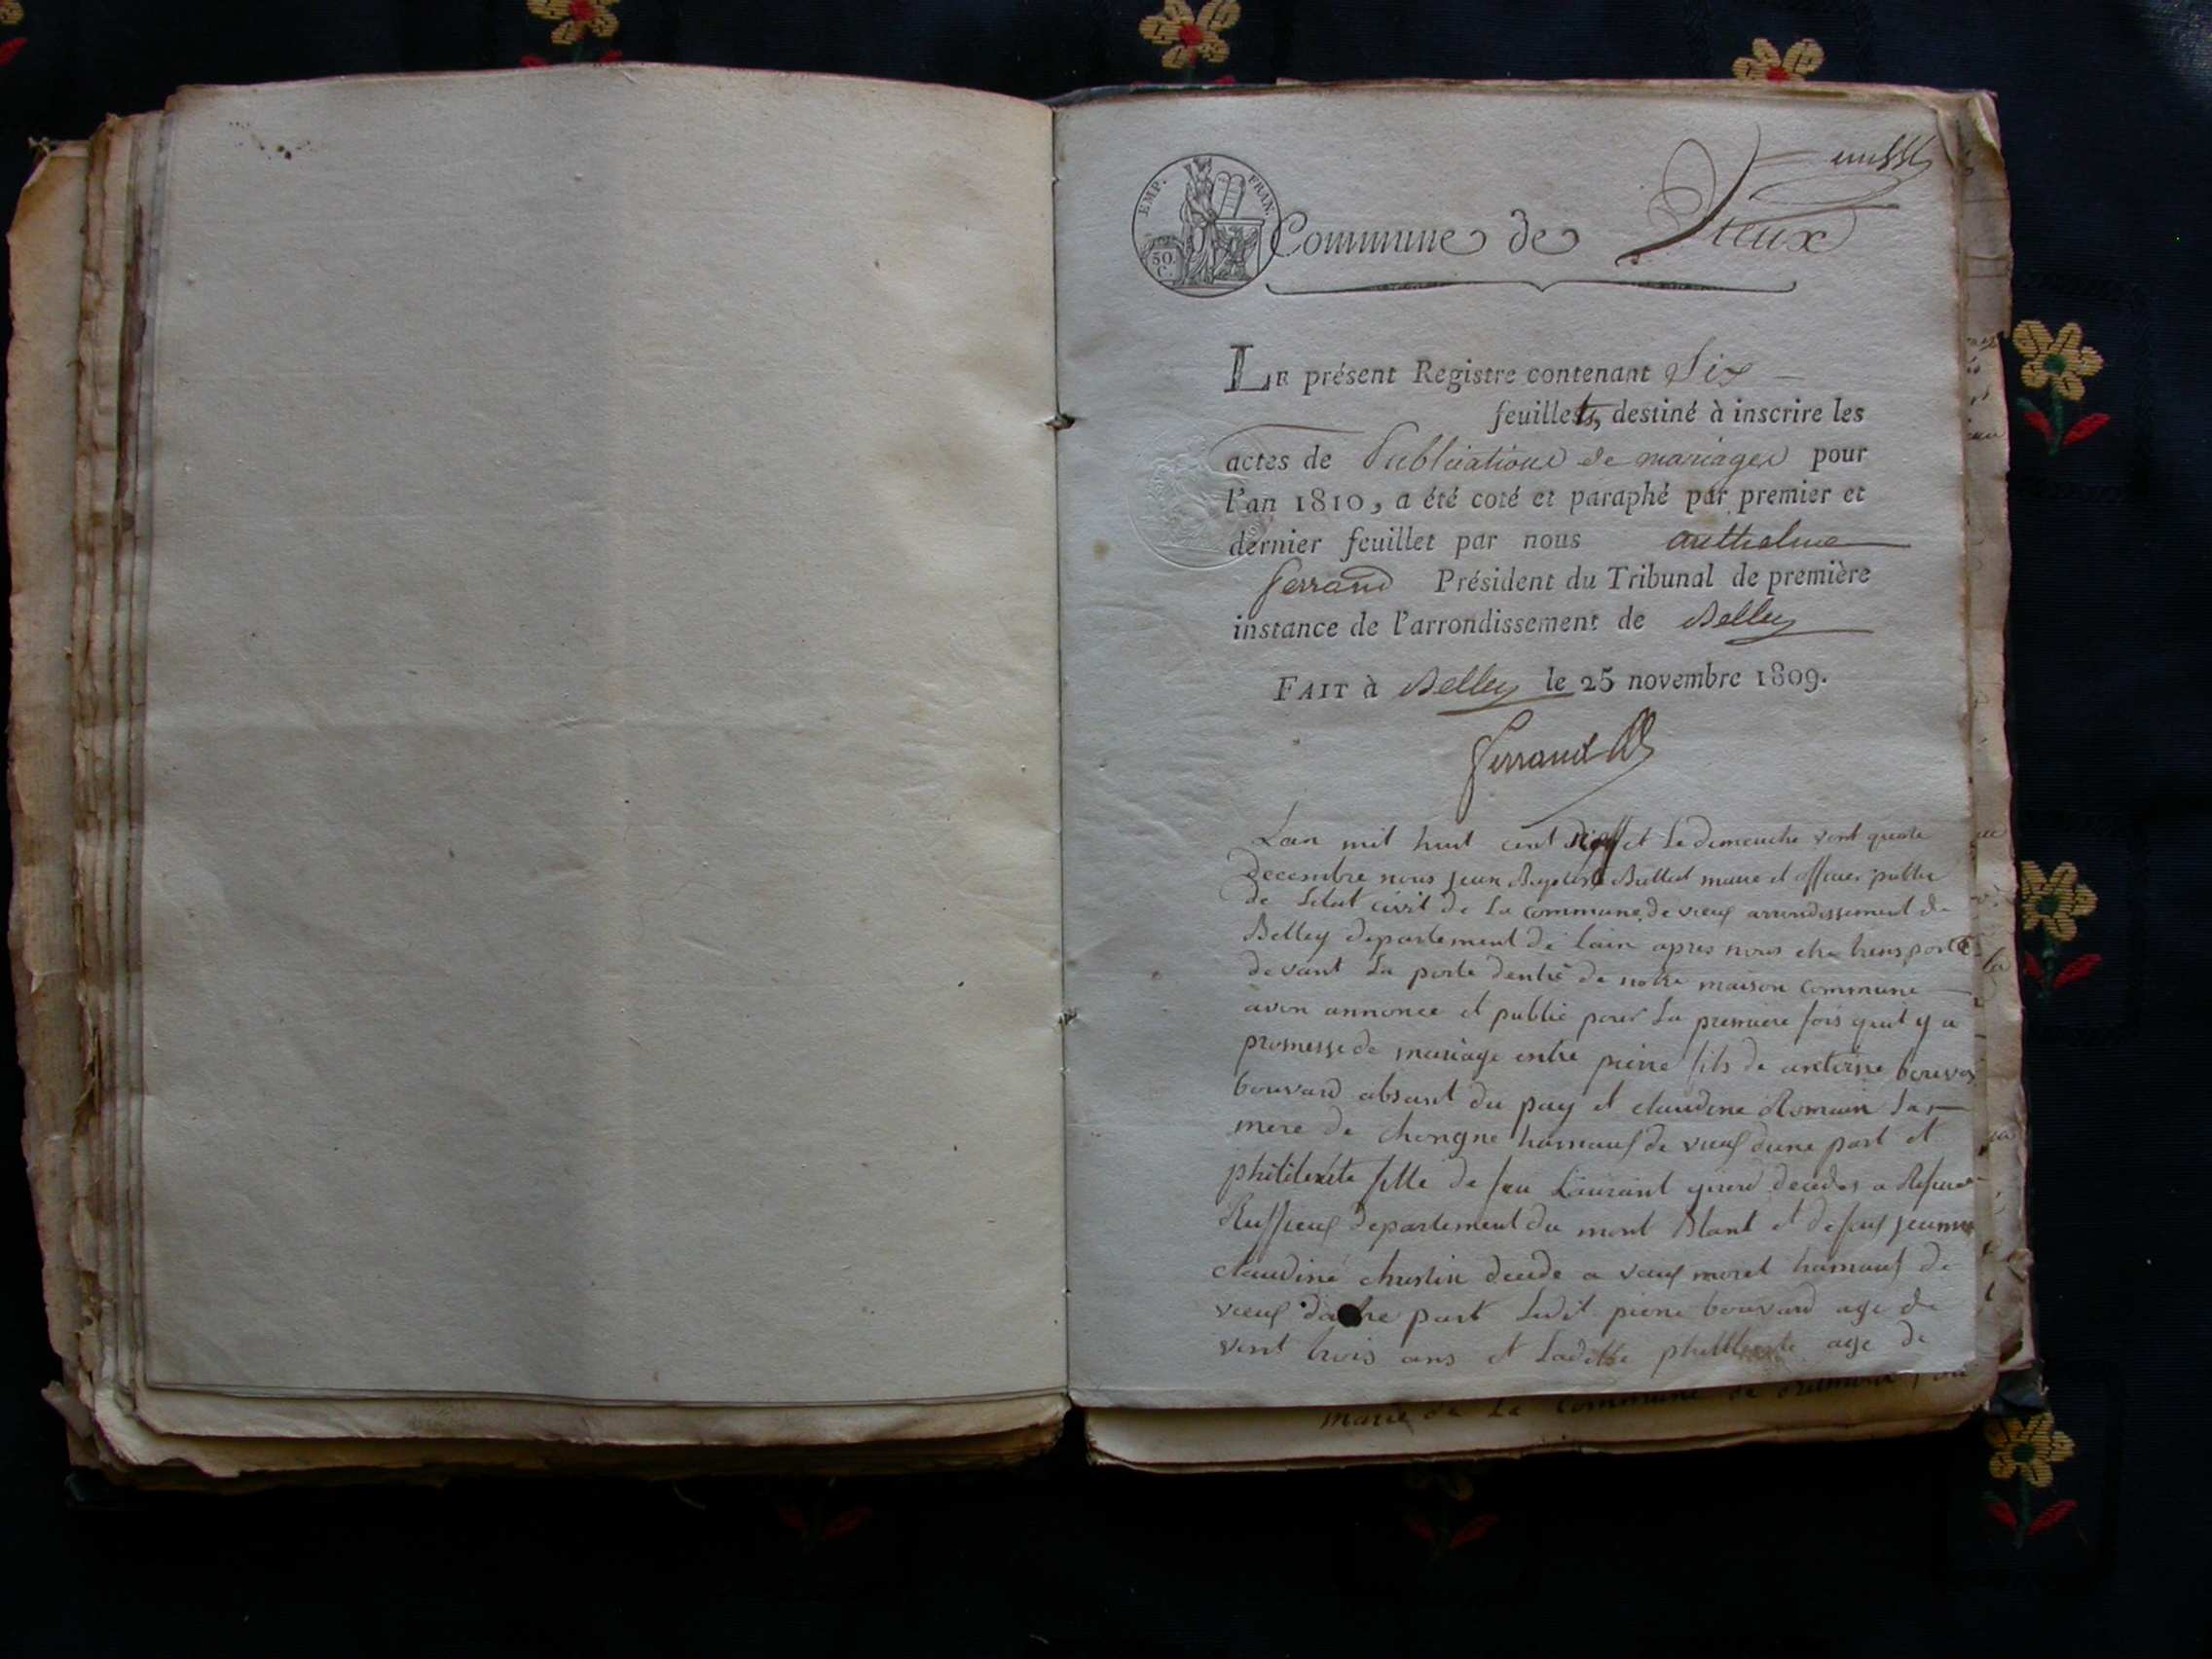 EMP. FRAN.
50.
C.
Commune de Vieux
LE présent Registre contenant Six
feuillets, destiné à inscrire les
actes de Publications de mariages pour
l'an 1810, a été coté et paraphé par premier et
dernier feuillet par nous anthelme
ferrand Président du Tribunal de première
instance de l'arrondissement de Belley
FAIT à Belley le 25 novembre 1809.
ferrand
Lan mil huit cent et Le dimenche vent
decembre nous jean Baptiste Billiet maire et officier public
de Letat civil de La commune de vieux arrondissement de
Belley departement de Lain apres nous etre trensporté
devant La porte dentré de notre maison commune
avon annonce et publié pour La premiere fois quil y a
promesse de mariage entre pierre fils de antoine
bouvard absant du pay et claudine Romain Sa
mere de chongne hamauf de vieuf dune part et
fille de feu Laurant decedes a
Ruffieuf departement du mont Blant et
claudine decede a hamauf de
vieuf part Ledit pierre bouvard age de
vent trois ans et Laditte age de
marie de La commune de